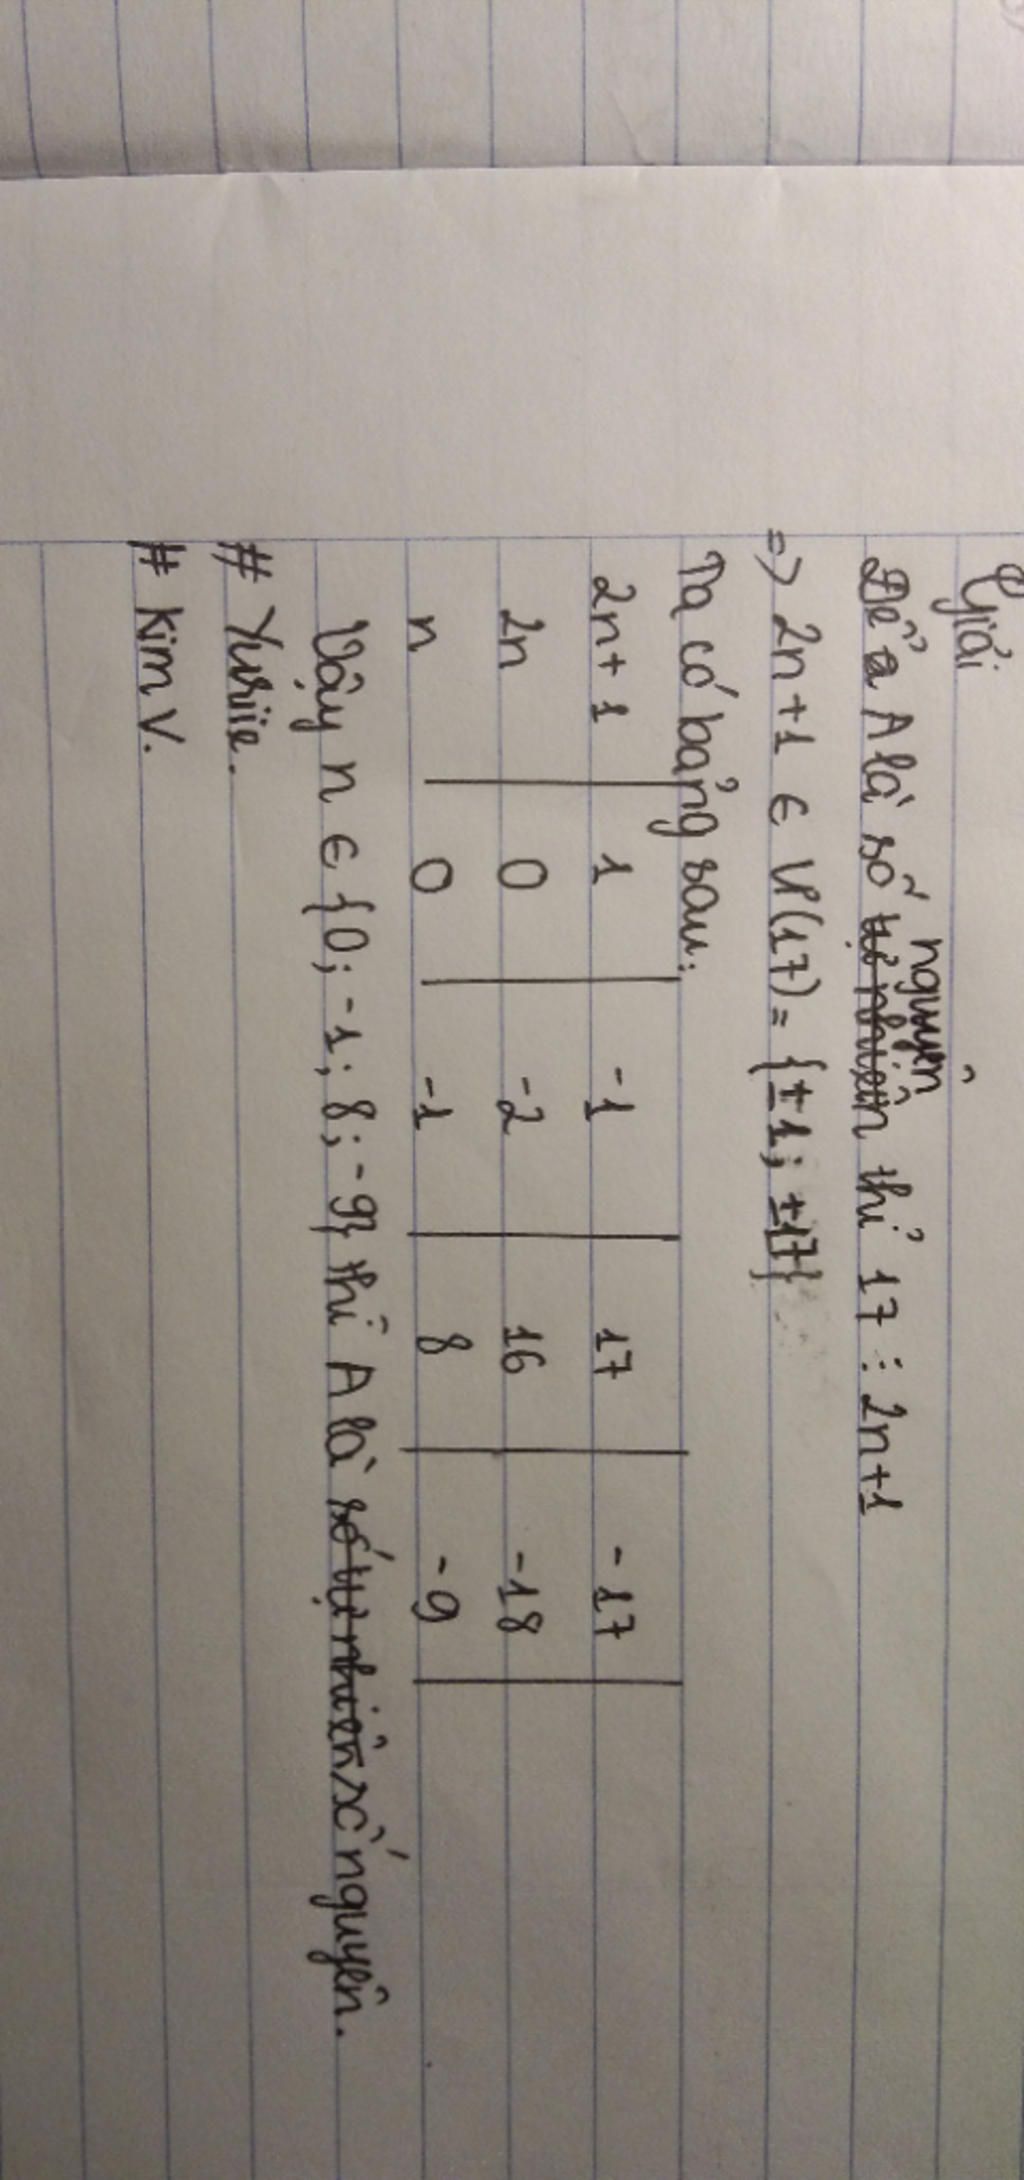 Giải
Để a A là số tự nhiên nguyên thì 17 ⋮ 2n+1
=> 2n+1 ∈ Ư(17) = {±1; ±17}
Ta có bảng sau:
2n+1 | 1 | -1 | 17 | -17
2n | 0 | -2 | 16 | -18
n | 0 | -1 | 8 | -9
Vậy n ∈ {0; -1; 8; -9} thì A là số tự nhiên số nguyên.
# Yuriie.
# Kim V.